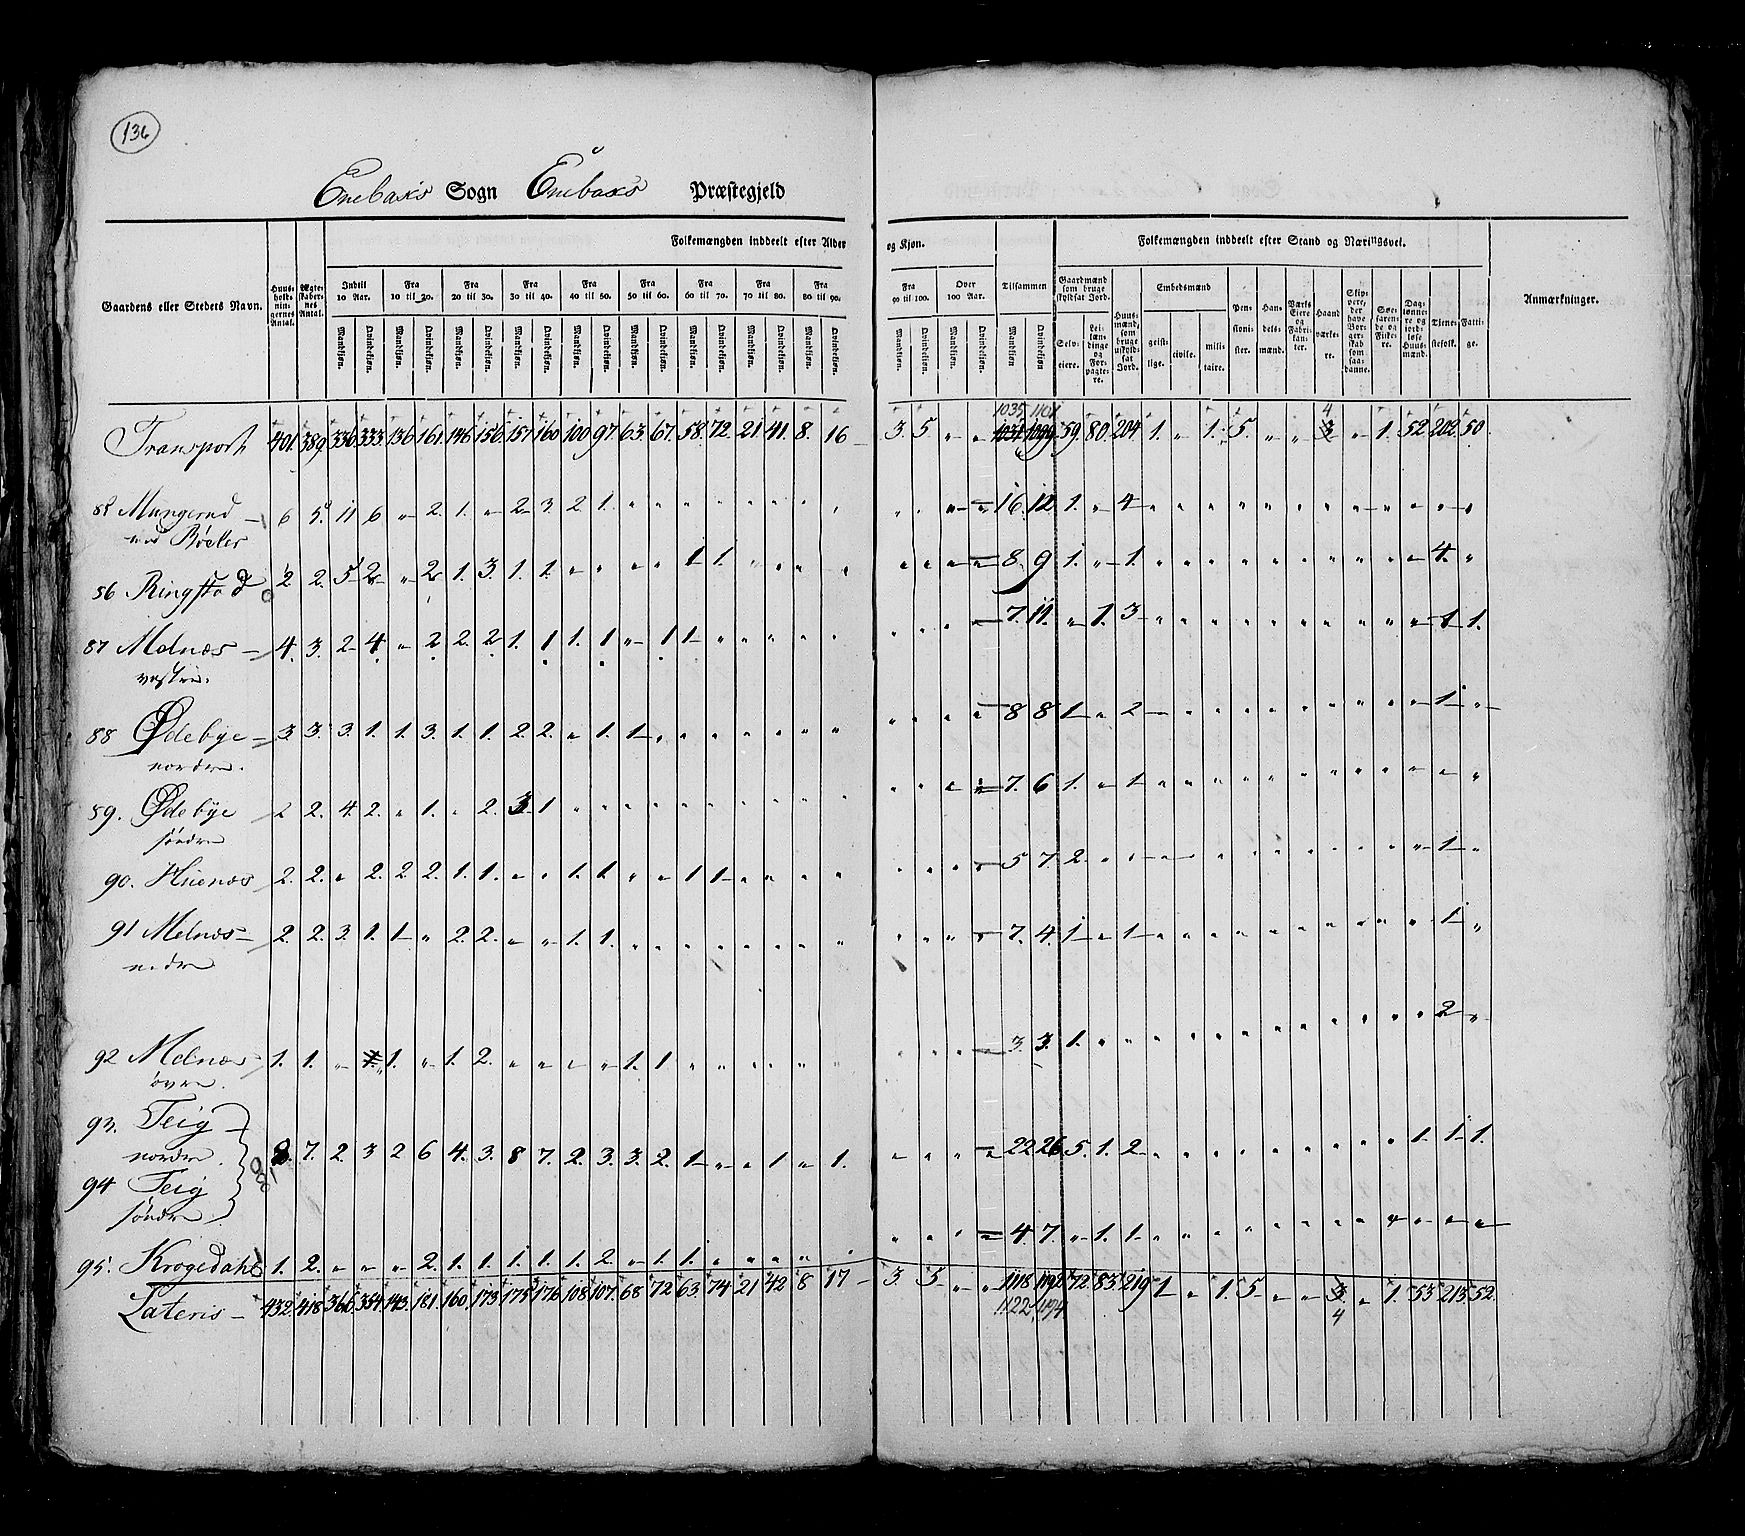 136
Enebaks Sogn Enebaks Præstegjeld
Gaardens eller Stedets Navn.
Huus-holdningernes Antal.
Ægteskabernes Antal.
Folkemængden inddeelt efter Alder og Kjøn.
Folkemængden inddeelt efter Stand og Næringsvei.
Anmærkninger.
Indtil 10 Aar.
Fra 10 til 20.
Fra 20 til 30.
Fra 30 til 40.
Fra 40 til 50.
Fra 50 til 60.
Fra 60 til 70.
Fra 70 til 80.
Fra 80 til 90.
Fra 90 til 100.
Over 100 Aar.
Tilsammen
Mandkjøn. Qvindekjøn.
Gaardmænd som bruge skyldsat Jord.
Selveiere.
Leilændinge og Forpagtere.
Huusmænd, som bruge uskyldsat Jord.
Embedsmænd
geistlige. civile. militaire.
Pensionister.
Handelsmænd.
Værks Eiere og Fabrikanter.
Haandværkere.
Skippere, der have Borgerskab som saadanne.
Søefarende og Fiskere.
Daglønnere og jordløse Huusmænd.
Tjenestefolk.
Fattige.
1035 1101 4
Transport 401. 389. 336. 333. 136. 161. 146. 156. 157. 160. 100. 97. 63. 67. 58. 72. 21. 41. 8. 16 3. 5. " " 1031 1099 59. 80. 204 1. " 1. 5. " " 3 " 1. 52 202 50.
85 Mangerud 6 5. 11 6 " 2. 1. " 2 3. 2 1. 16. 12 1. " 4
med Bøeler
86 Ringstad 2 2. 5 2 " 2 1. 3. 1. 1. " " " " 1 1. 8. 9 1. " 1. 4. "
87 Melnæs 4. 3. 2 4 " 2 2. 2 1. 1 1. 1 " 1 1 7. 11. " 1. 3 1 1.
vestre.
88 Ødebye 3. 3. 3. 1. 1. 3. 1. 1. 2 2. " 1. 1 8 8 1 " 2 1 "
nordre.
89. Ødebye 2 2. 4. 2. " 1. " 2. 3. 1 7. 6 1. " 1
søndre
90. Huenæs 2. 2. " 2. 2 2. 1. 1. " " 1. 1. " " 1 1 5 7. 2. 1 "
91 Melnæs 2. 2. 3. 1. 1 " 2. 2. " " 1. 1. 7. 4. 1 " 1 1 "
nedre
92 Melnæs 1. 1. " 1. 1. " 1. 2. " " " " 1. 1 3. 3. 1. 2 "
øvre.
93. Teig
nordre. 8. 7. 2 3 2 6 4. 3. 8 7. 2. 3. 3. 2. 1 " " 1 " 1. 22 26 5. 1. 2 1. 1 1.
94 Teig
søndre
95. Krogedahl 1. 2. " " " 2. 1. 1. 1. 1. 1. 2. " 1. 1. 4. 7. " 1. 1.
Lateris 432. 418 366 354. 143. 181. 160. 173. 175 176 108 107. 68 72 63. 74 21 42 8 17 3 5 " " 1118 1192 72. 83. 219 1 " 1. 5. " " 3 " 1. 53 213 52.
1122 1194 4